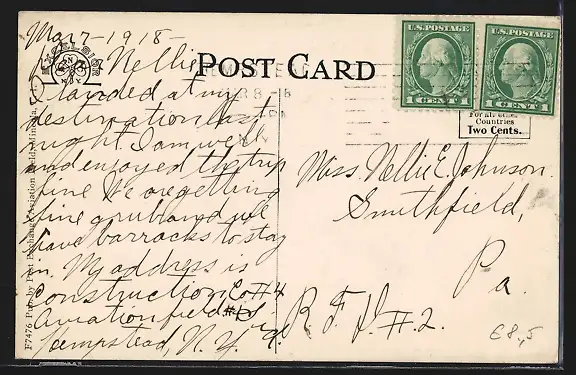 Mar 7-1918-
Nellie
I landed at my
destination last
night. I am well
and enjoyed the trip
fine We are getting
fine grub and will
have barracks to stay
in. My address is
Construction Co #4
Aviation field #
Hempstead, N. Y.
POST CARD
EXCELSIOR
U.S. POSTAGE
1 CENT 1
U.S. POSTAGE
1 CENT 1
For all other
Countries
Two Cents.
Miss. Nellie E. Johnson.
Smithfield,
Pa.
R. F. D. #. 2.
F7476 Pub. by Post Exchange, Aviation Field, Mineola, L. I.
£8,5